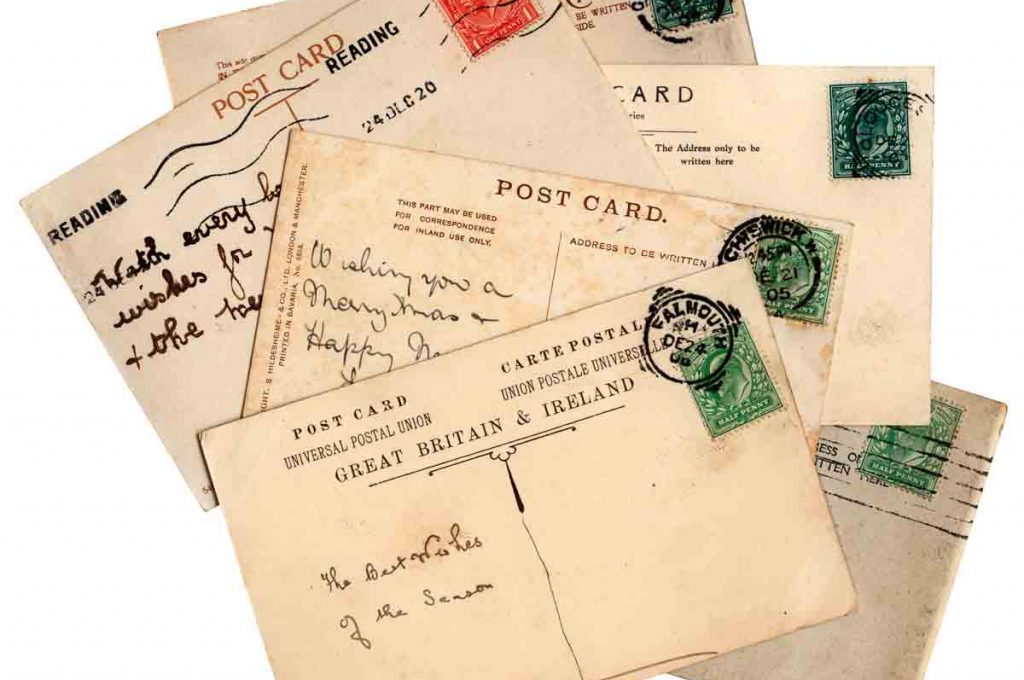 This side
IN
POST CARD
READING
24 DEC 20
ONE PENNY
1
READING
24
With every
wishes for
+ the
BE WRITTEN
SIDE.
CARD
The Address only to be
written here
HALF PENNY
POST CARD.
THIS PART MAY BE USED
FOR CORRESPONDENCE
FOR INLAND USE ONLY.
ADDRESS TO BE WRITTEN
S. HILDESHEIMER & CO., LTD. LONDON & MANCHESTER.
PRINTED IN BAVARIA.
Wishing you a
Merry Xmas +
Happy N
CHISWICK W
2.45 PM
DE 21
05
HALF PENNY
POST CARD
UNIVERSAL POSTAL UNION
CARTE POSTALE
UNION POSTALE UNIVERSELLE
GREAT BRITAIN & IRELAND
FALMOUTH
DE 24
HALF PENNY
The Best Wishes
of the Season
ESS ON
ITTEN HERE
HALF PENNY